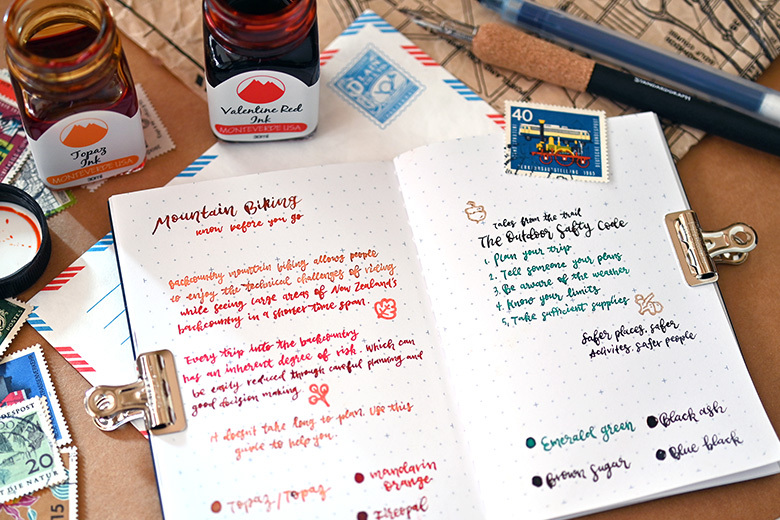 Topaz
Ink
MONTEVERDE USA
30ml
Valentine Red
Ink
MONTEVERDE USA
30ml
40
Mountain Biking
know before you go
Backcountry mountain biking allows people
to enjoy the technical challenges of riding
while seeing large areas of New Zealand's
backcountry in a shorter time span.
Every trip into the backcountry
has an inherent degree of risk. Which can
be easily reduced through careful planning and
good decision making.
It doesn't take long to plan. Use this
guide to help you.
Topaz/Topaz
mandarin
orange
Fireopal
Tales from the trail
The Outdoor Safty Code
1. Plan your trip
2. Tell someone your plans
3. Be aware of the weather
4. Know your limits
5. Take sufficient supplies
Safer places, safer
activites, safer people
Emerald green
Black ash
Brown Sugar
Blue black
20
15